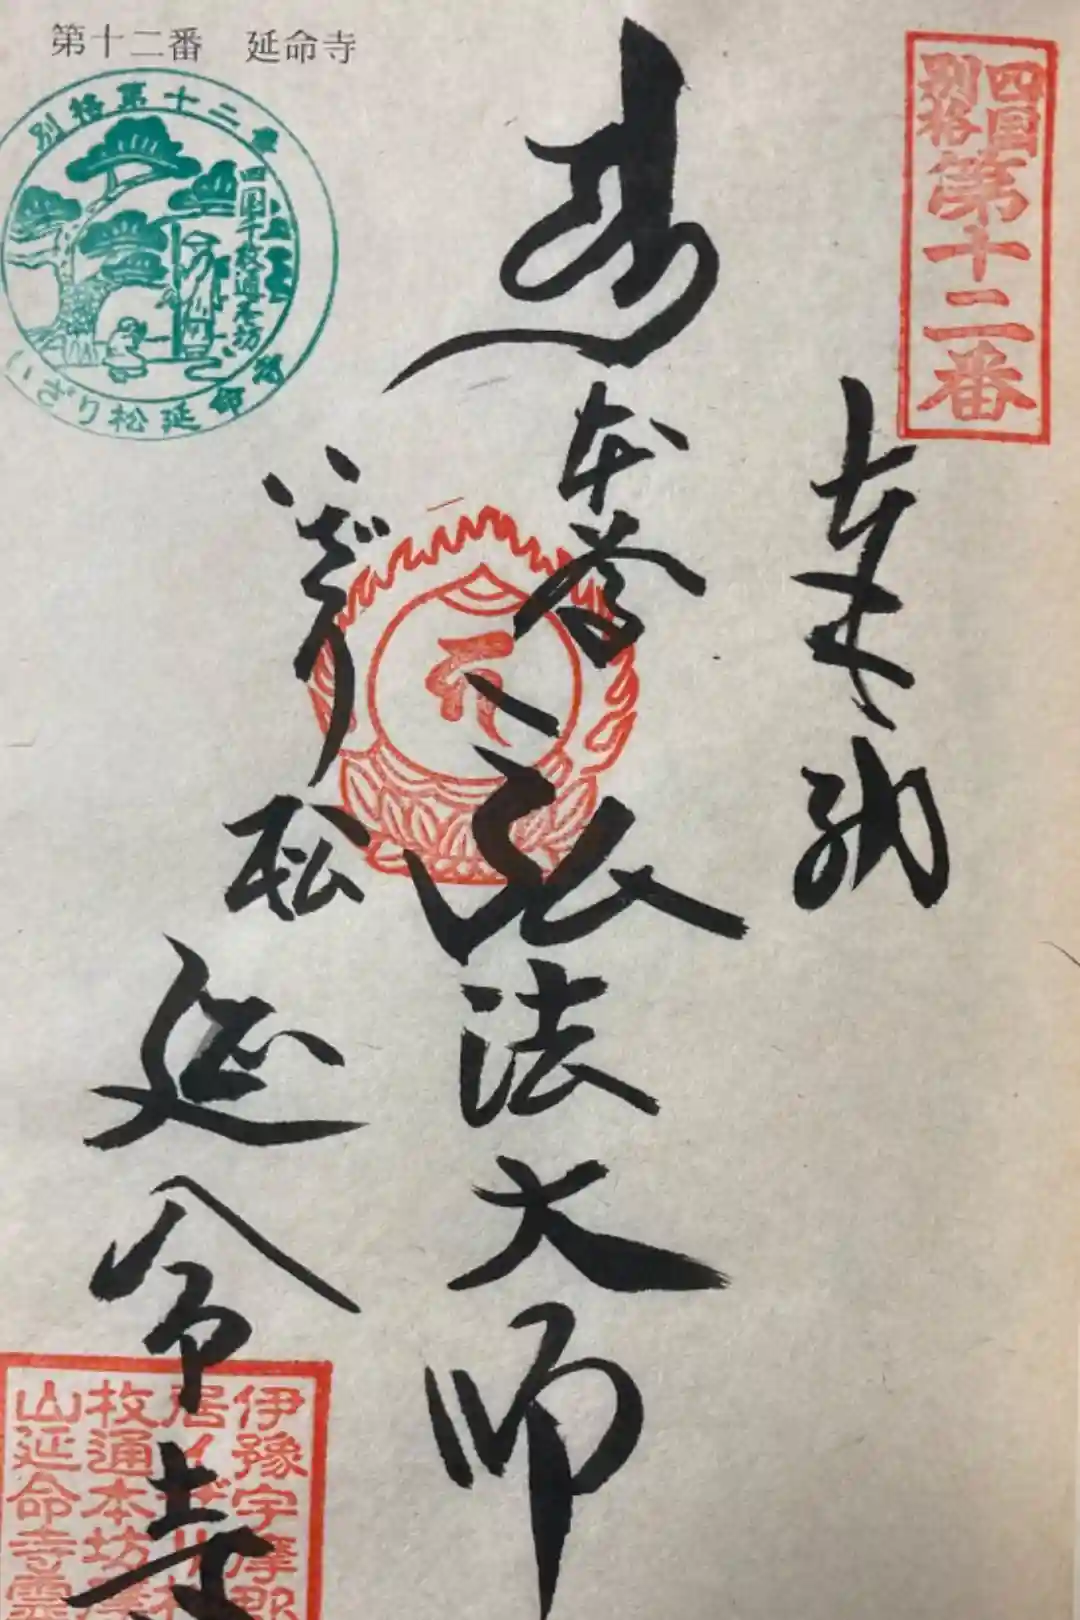 第十二番 延命寺
四国
別格
第十二番
奉納
本尊
弘法大師
いざり松
延命寺
別格第十二番
四国千枚通本坊
いざり松延命寺
伊豫宇摩郡
居イザリ松
枚通本坊
山延命寺雲